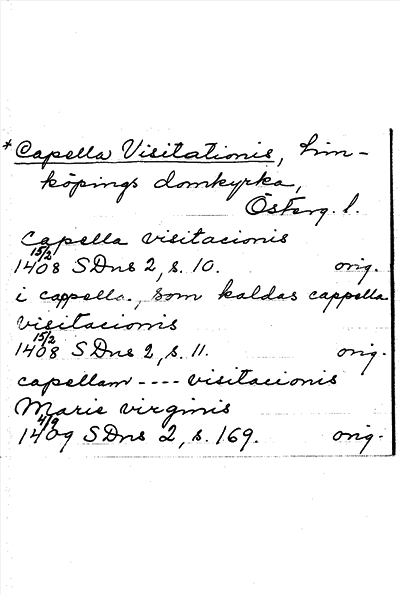 * Capella Visitationis, Lin-
köpings domkyrka,
Österg. l.
Capella visitacionis
15/2
1408 SDns 2, s. 10. orig.
i cappella, som kaldas cappella
visitacionis
15/2
1408 SDns 2, s. 11. orig.
capellam ---- visitacionis
Marie virginis
4/9
1409 SDns 2, s. 169. orig.